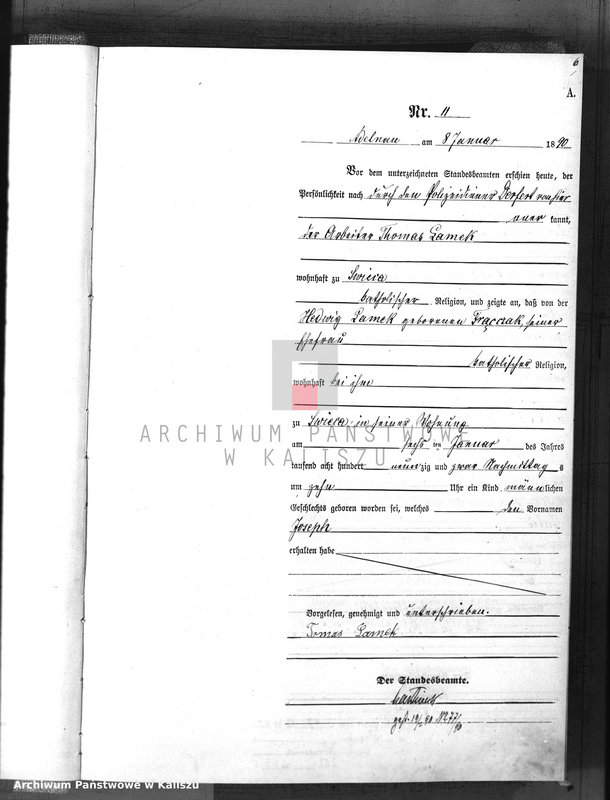 6
A.
Nr. 11
Adelnau am 8 Januar 1890
Vor dem unterzeichneten Standesbeamten erschien heute, der
Persönlichkeit nach durch den Polizeidiener von hier
aner kannt,
der Arbeiter Thomas Lamek
wohnhaft zu Swieca
katholischer Religion, und zeigte an, daß von der
Hedwig Lamek geborenen Frączak, seiner
Ehefrau
katholischer Religion,
wohnhaft bei ihm
zu Swieca in seiner Wohnung
am sechs ten Januar des Jahres
tausend acht hundert neun zig und zwar Nachmittag s
um zehn Uhr ein Kind männ lichen
Geschlechts geboren worden sei, welches den Vornamen
Joseph
erhalten habe
Vorgelesen, genehmigt und unterschrieben.
Tomas Lamek
Der Standesbeamte.
ARCHIWUM PAŃSTWOWE
W KALISZU
Archiwum Państwowe w Kaliszu